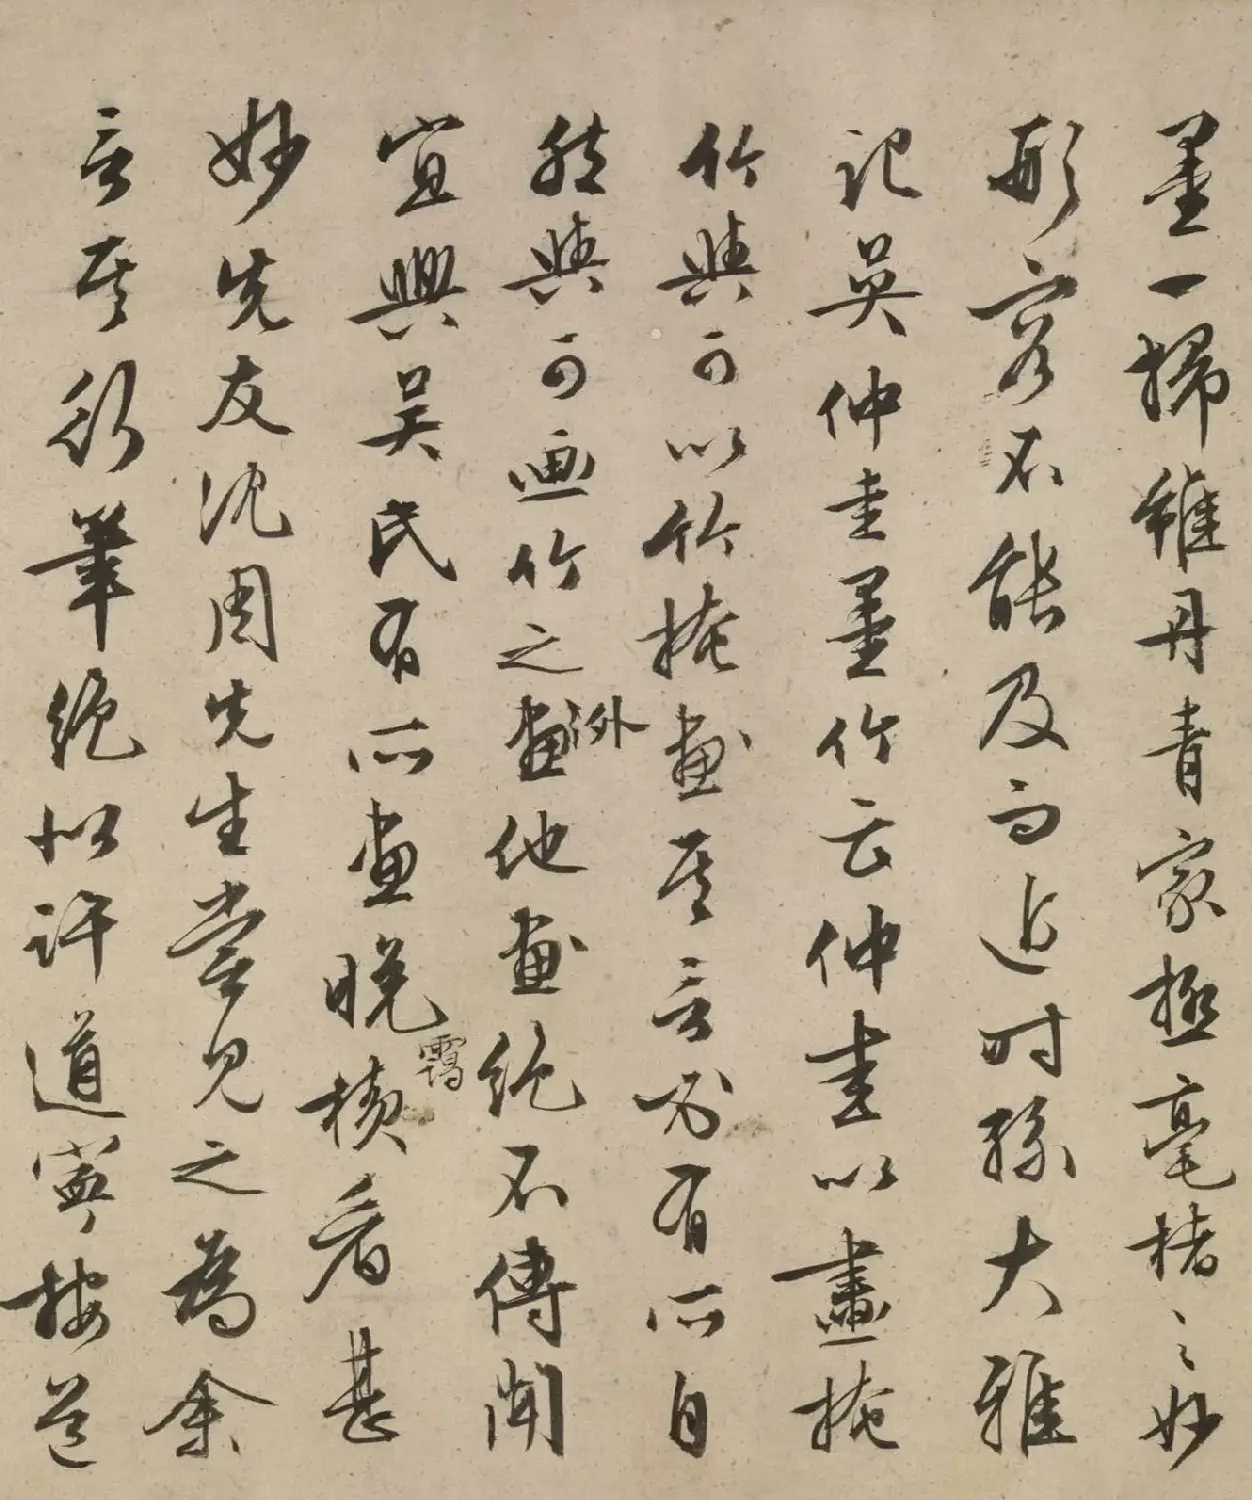 墨一掃雖丹青家極毫楮之妙
形容不能及而近時孫大雅
記吳仲圭墨竹云仲圭以畫掩
竹與可以竹掩畫其言必有所自
然與可画竹之畫外他畫絕不傳聞
宜興吳氏有所畫晚靄橫看甚
妙先友沈周先生嘗見之為余
言其行筆絕似許道寧按道